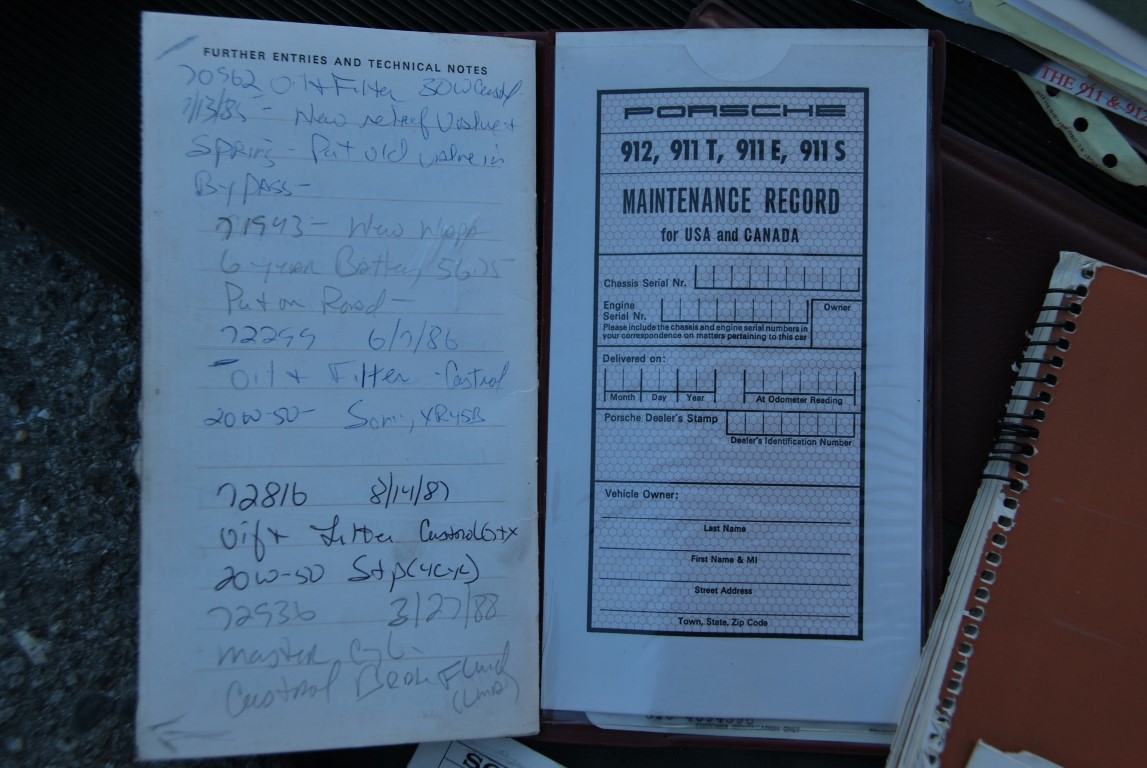 FURTHER ENTRIES AND TECHNICAL NOTES
70562 Oil + Filter 30W Castrol
7/13/85 - New relief Valve +
Spring - Put old valve in
By pass -
71943 - New Napa
6-year Battery 5625
Put on Road -
72299 6/7/86
Oil + Filter - Castrol
20W-50 -
72816 8/14/87
Oil + Filter Castrol GTX
20W-50 Stp
72936 3/27/88
master Cyl -
Castrol Fluid
PORSCHE
912, 911 T, 911 E, 911 S
MAINTENANCE RECORD
for USA and CANADA
Chassis Serial Nr.
Engine
Serial Nr.
Owner
Please include the chassis and engine serial numbers in
your correspondence on matters pertaining to this car
Delivered on:
Month Day Year
At Odometer Reading
Porsche Dealer's Stamp
Dealer's Identification Number
Vehicle Owner:
Last Name
First Name & MI
Street Address
Town, State, Zip Code
THE 911 & 912